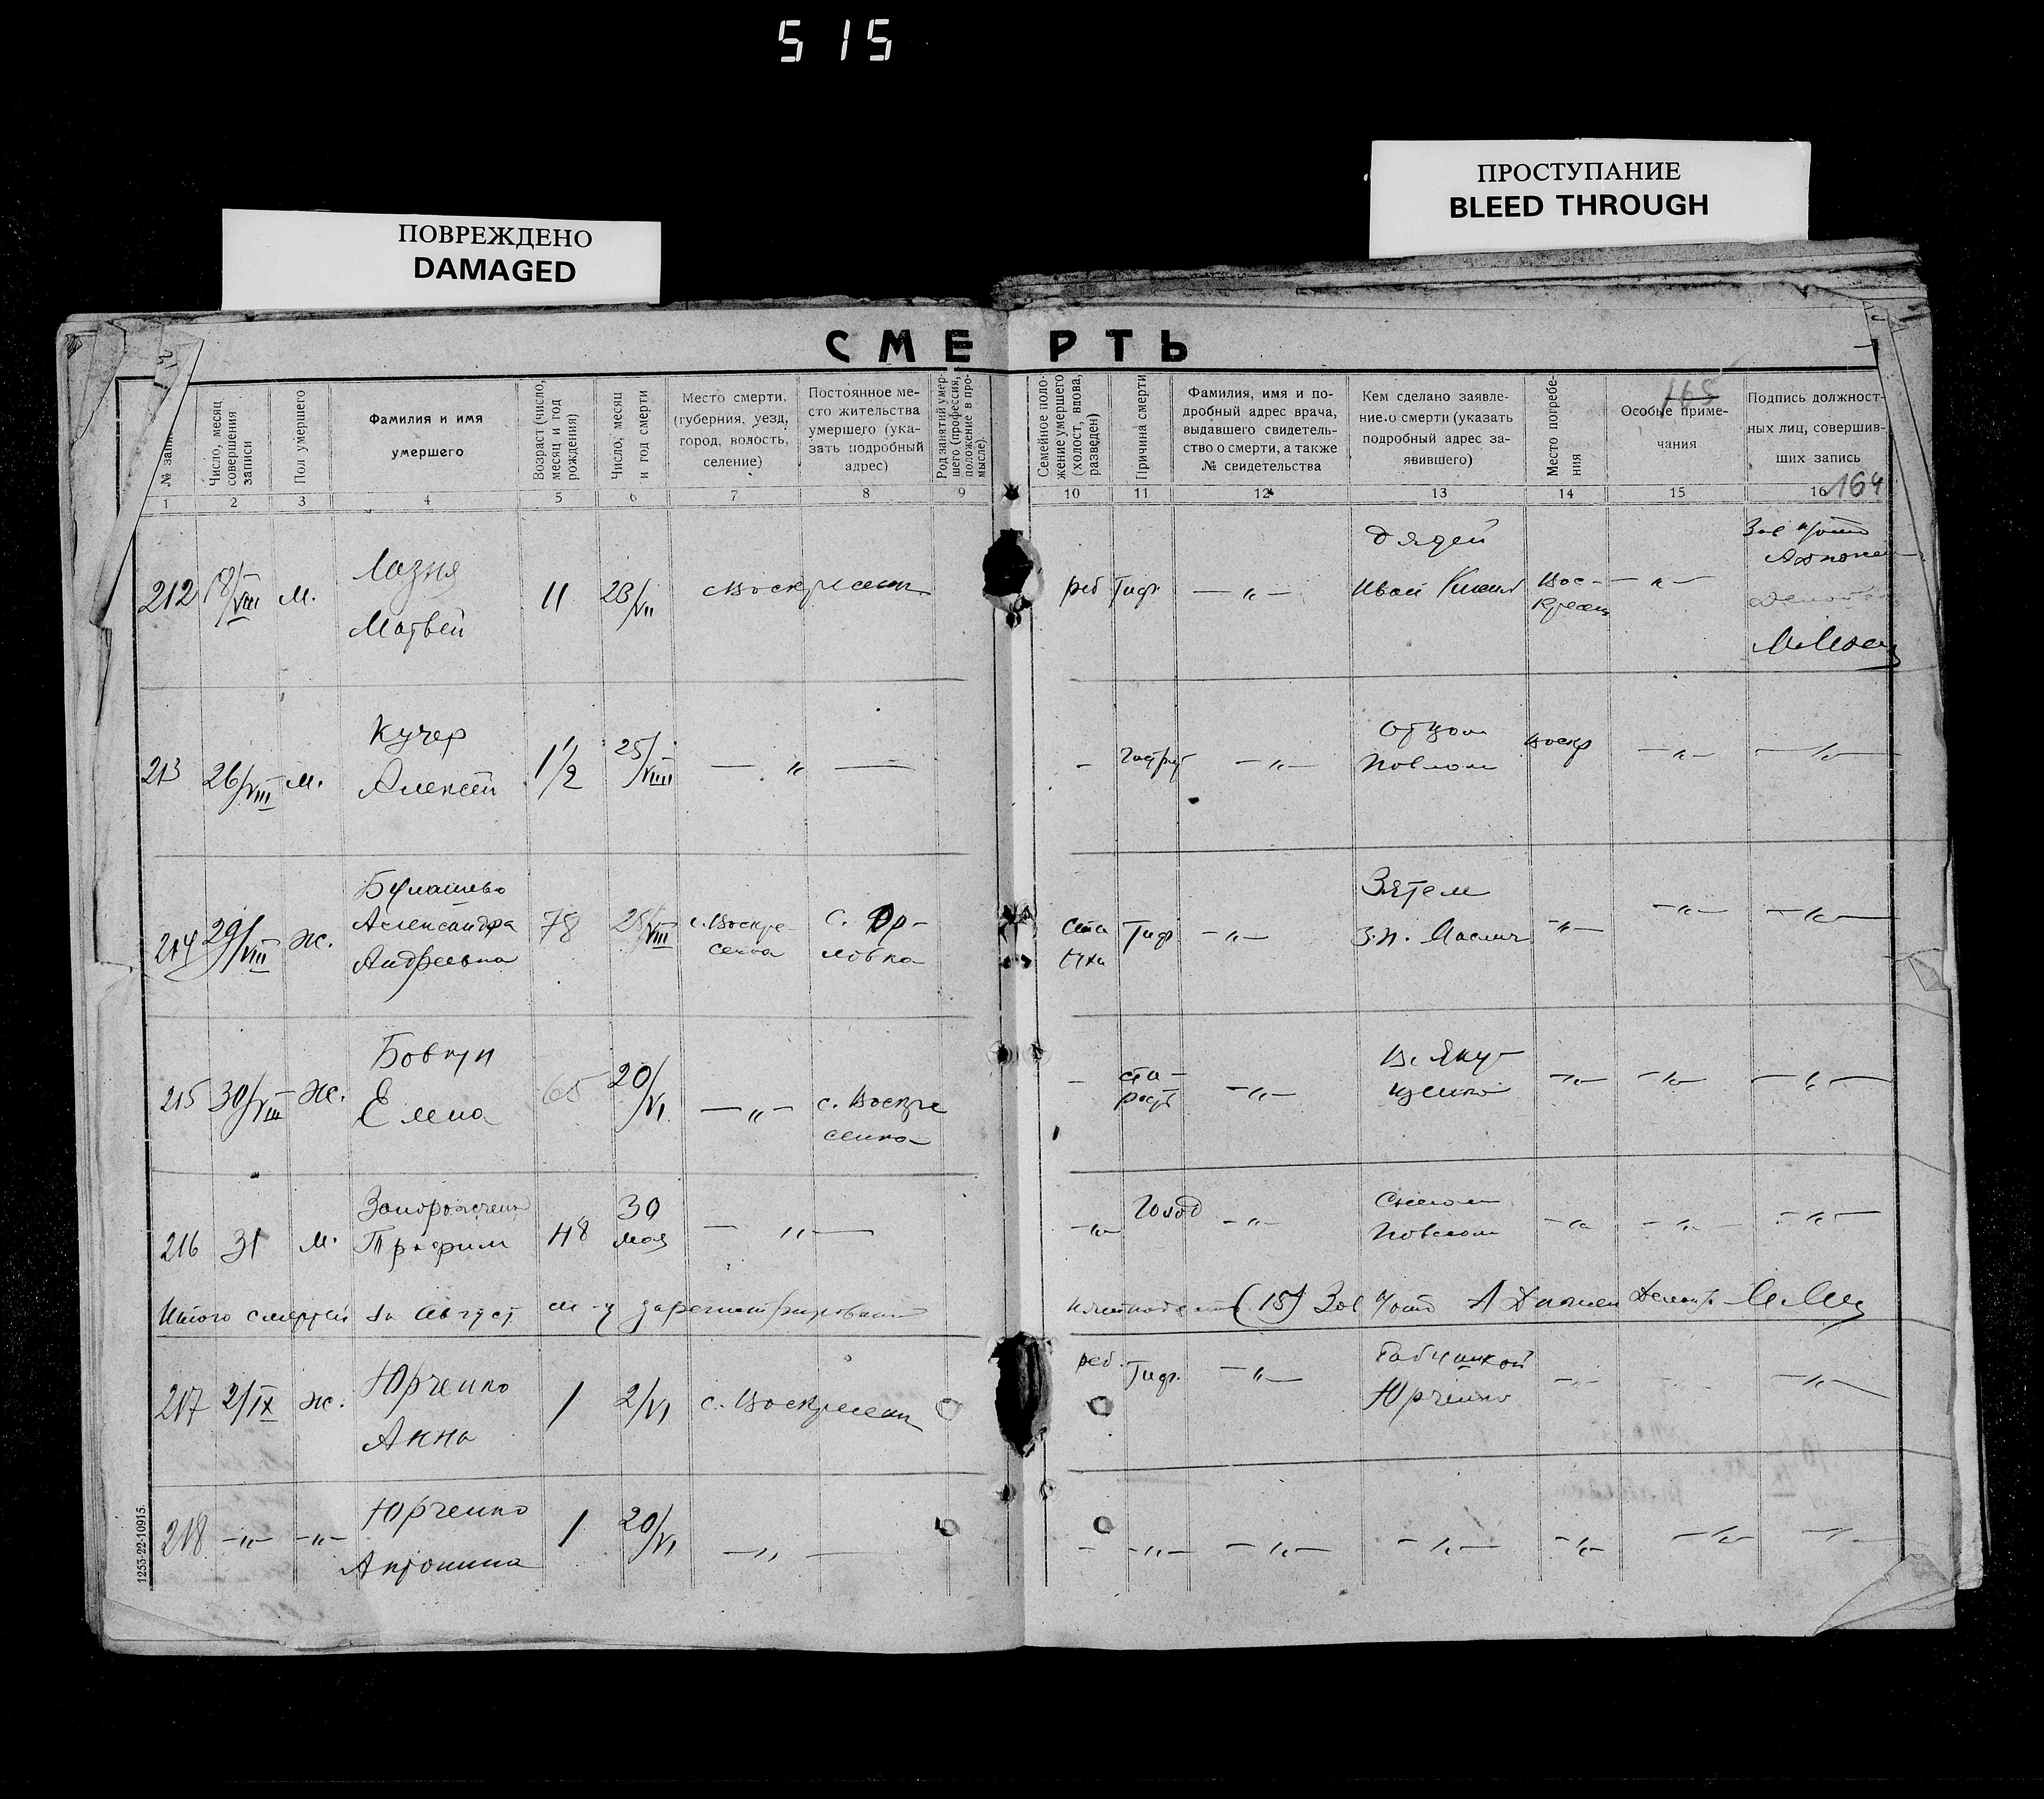 515
ПРОСТУПАНИЕ
BLEED THROUGH
ПОВРЕЖДЕНО
DAMAGED
СМЕРТЬ
№ запи
Число, месяц совершения записи
Пол умершего
Фамилия и имя умершего
Возраст (число, месяц и год рождения)
Число, месяц и год смерти
Место смерти, (губерния, уезд, город, волость, селение)
Постоянное место жительства умершего (указать подробный адрес)
Род занятий умершего (профессия, положение в промысле).
Семейное положение умершего (холост, вдова, разведен)
Причина смерти
Фамилия, имя и подробный адрес врача, выдавшего свидетельство о смерти, а также № свидетельства
Кем сделано заявление о смерти (указать подробный адрес заявившего)
Место погребения
165
Особые примечания
Подпись должностных лиц, совершивших запись
1 2 3 4 5 6 7 8 9 10 11 12 13 14 15 16 164
212 18/VIII м. Лазня Матвей 11 23/VII Воскресен реб Тиф — „ — Дядей Иван Вос-кресен — „ —
213 26/VIII м. Кучер Алексей 1 1/2 25/VIII — „ — - — „ — Отцом Павлом Воскр — „ — — „ —
214 29/VIII ж. Александра Андреевна 78 28/VIII с. Воскре-сенка с. Ор-ловка Ста рухи Тиф — „ — Зятем — „ — — „ — — „ —
215 30/VIII ж. Бовкун Елена 65 20/VI — „ — с. Воскре сенка - ста-рость — „ — Яку-ценко — „ — — „ — — „ —
216 31 м. Запорожченко Трофим 48 30 мая — „ — — „ — Голод — „ — Сыном Павлом — „ — — „ — — „ —
Итого смертей за Август м-ц зарегистрировано пятнадцать (15) Зав
217 2/IX ж. Юрченко Анна 1 2/VI с. Воскресен реб. Тиф. — „ — Юрченко — „ — — „ —
218 — „ — — „ — Юрченко Антонина 1 20/VI — „ — - — „ — — „ — — „ — — „ — — „ — — „ —
1253-22-10915.